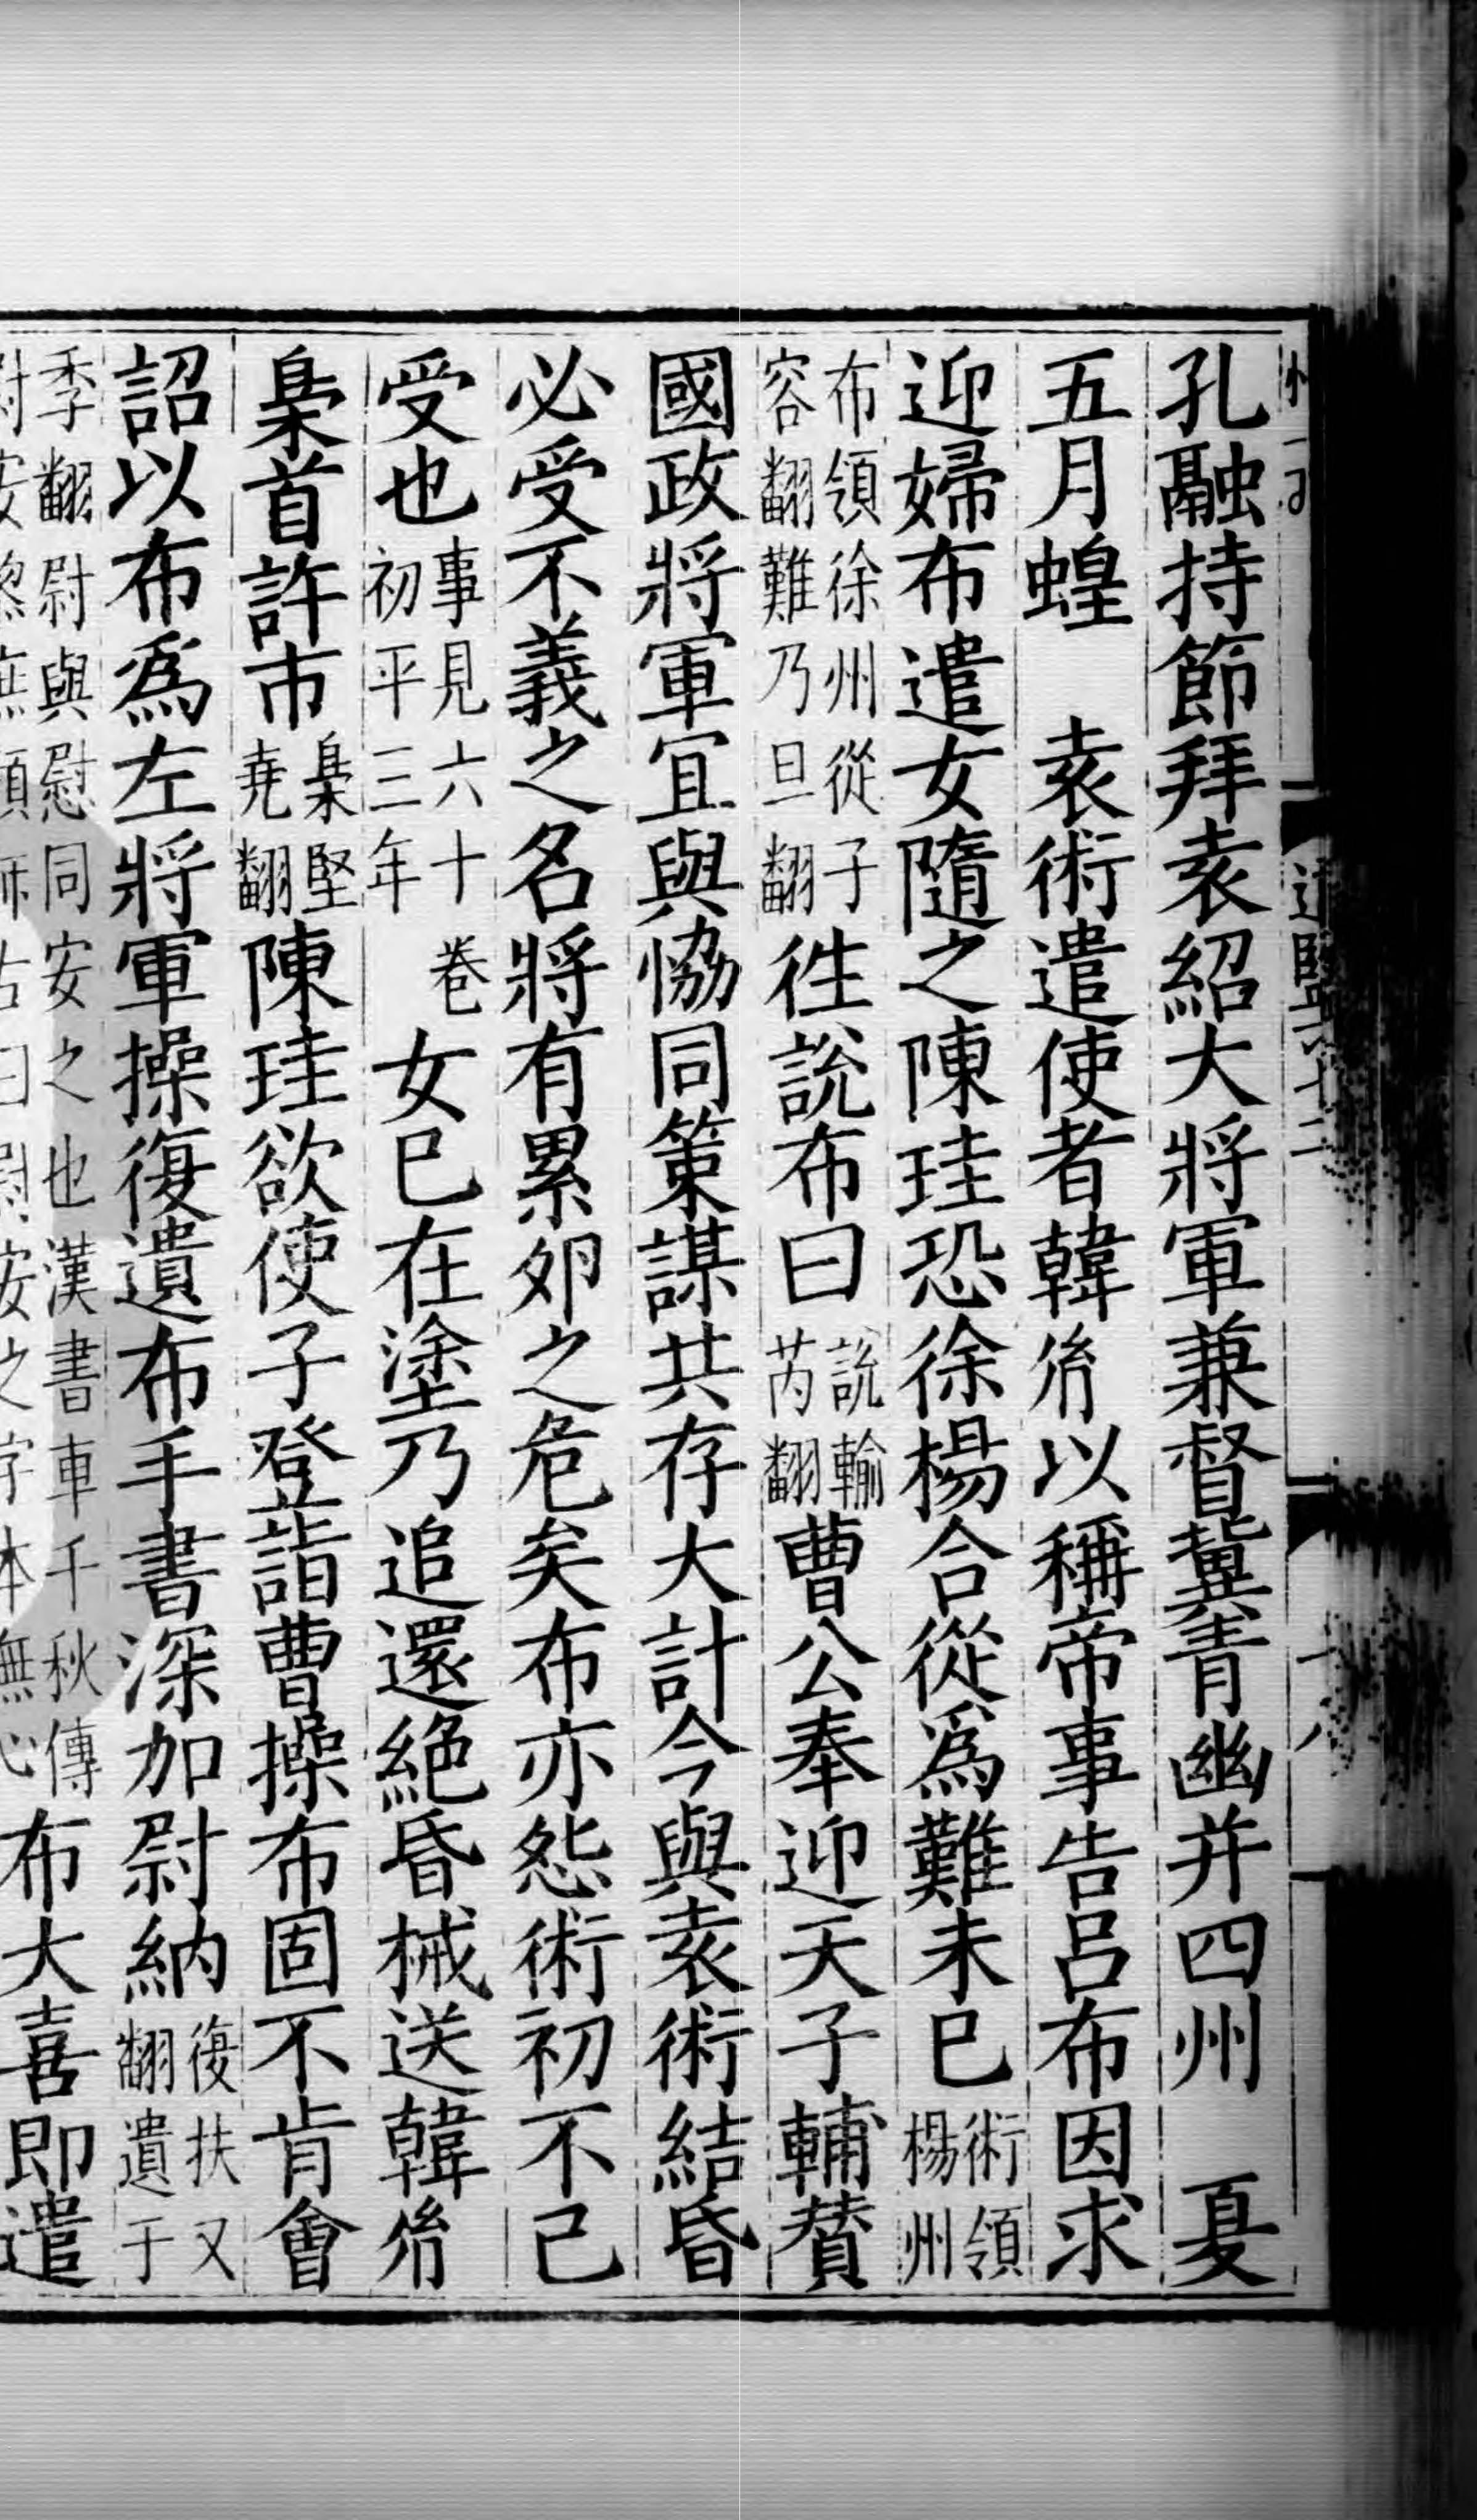 孔融持節拜袁紹大將軍兼督冀青幽并四州　夏
五月蝗　袁術遣使者韓㣧以稱帝事告呂布因求
迎婦布遣女隨之陳珪恐徐楊合從爲難未巳術領楊州
布領徐州從子容翻難乃旦翻徃説布曰説輸芮翻曹公奉迎天子輔賛
國政將軍宜與恊同策謀共存大計今與袁術結昏
必受不義之名將有累卵之危矣布亦怨術初不己
受也事見六十卷初平三年女巳在塗乃追還絶昏械送韓㣧
梟首許市梟堅堯翻陳珪欲使子登詣曹操布固不肯會
詔以布爲左將軍操復遺布手書深加尉納復扶又翻遺于
季翻尉與慰同安之也漢書車千秋傳布大喜即遣